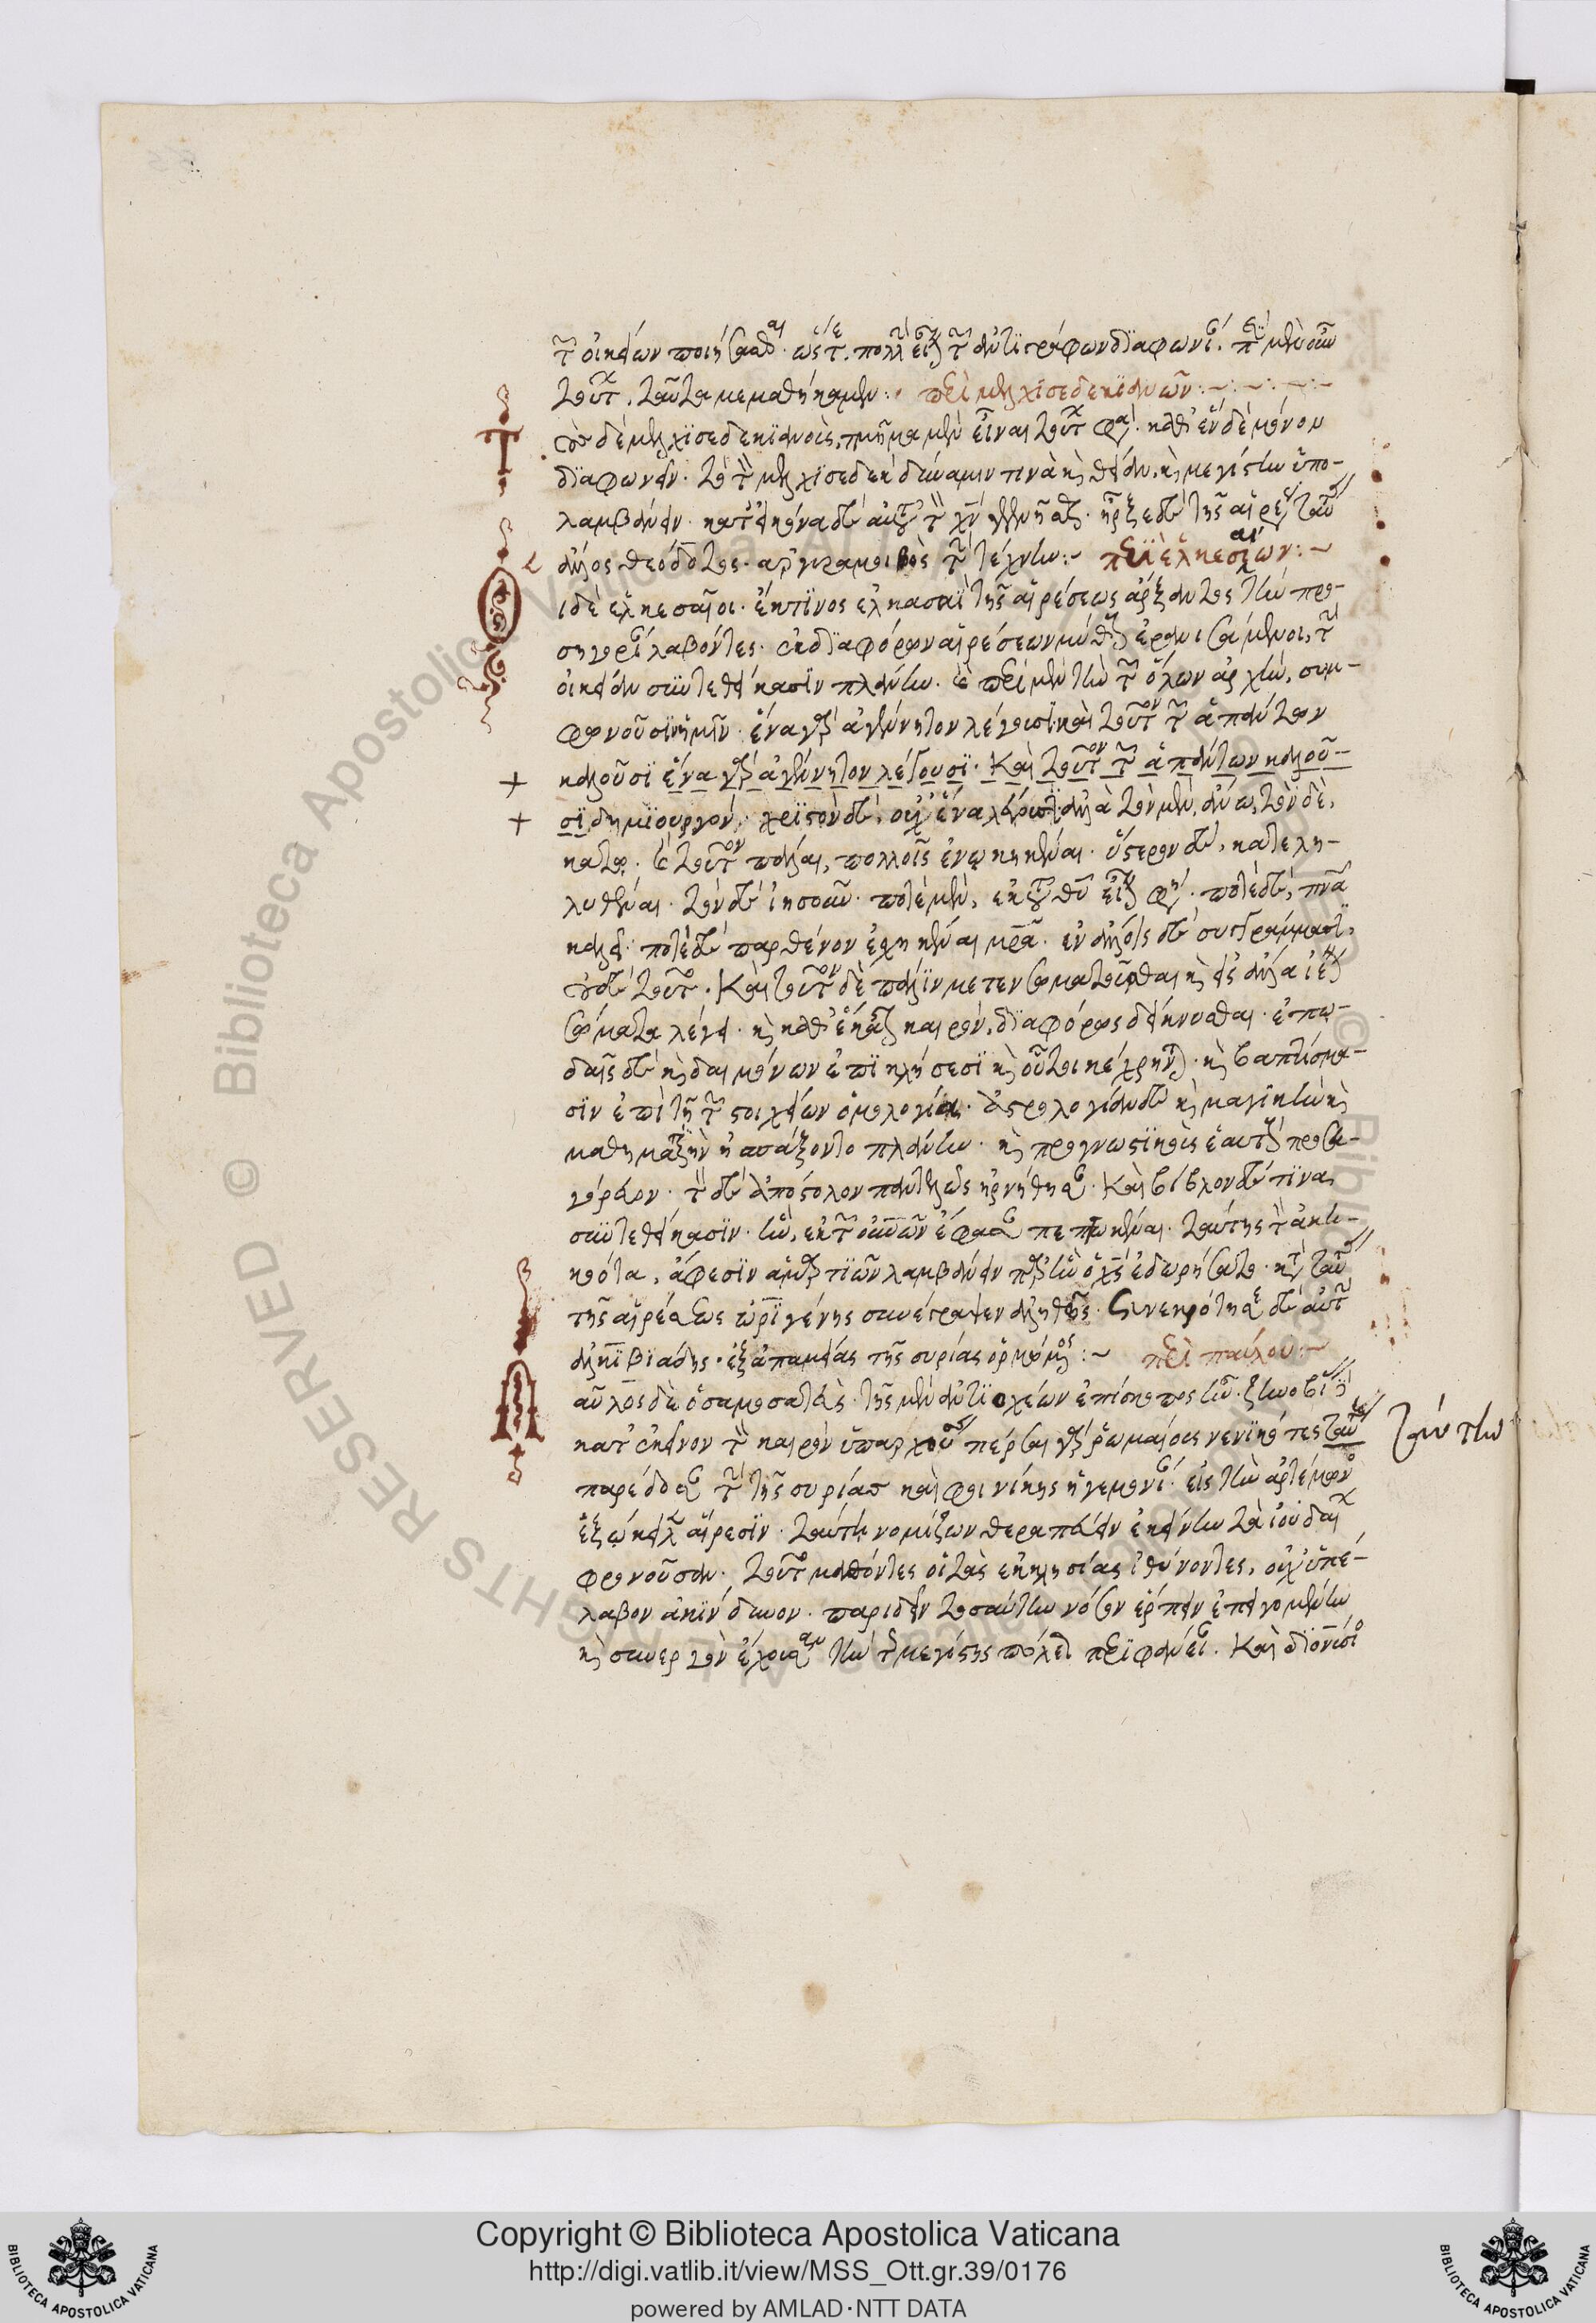 τῶν οἰκείων ποιήσασθαι. ὥστε πολλὴν εἶναι τῶν ἀντιγράφων διαφωνίαν. περὶ μὲν οὖν
τούτων, ταῦτα μεμαθήκαμεν: περὶ μελχισεδεκιανῶν:~
τοὺς δὲ μελχισεδεκιανοὺς, τμῆμα μὲν εἶναι τούτων φασὶ. καθ' ἓν δὲ μόνον
διαφωνεῖν. τὸ τὸν μελχισεδεκ δύναμιν τινὰ καὶ θείαν, καὶ μεγίστην ὑπο-
λαμβάνειν. κατ' εἰκόνα δὲ αὐτοῦ τὸν χν γεγενῆσθαι. ἦρξε δὲ τῆς αἱρέσεως ταύτης
ἄλλος θεόδοτος. ἀργυραμοιβὸς τὴν τέχνην:~ περὶ ἐλκεσαίων:~
ι δὲ ἐλκεσαῖοι. ἔκ τινος ἐλκασαῒ τῆς αἱρέσεως ἄρξαντος τὴν προ-
σηγορίαν λαβόντες. ἐκ διαφόρων αἱρέσεων μύθους ἐρανισάμενοι, τὴν
οἰκείαν συντεθείκασιν πλάνην. καὶ περὶ μὲν τὴν τῶν ὅλων ἀρχὴν, συμ-
φωνοῦσιν ἡμῖν. ἕνα γὰρ ἀγέννητον λέγουσι καὶ τοῦτον τῶν ἁπάντων
καλοῦσι ἕνα γὰρ ἀγέννητον λέγουσι. Καὶ τοῦτον τῶν ἁπάντων καλοῦ-
σι δημιουργόν. χριστὸν δὲ, οὐχ' ἕνα λέγουσιν ἀλλὰ τὸν μὲν, ἄνω, τὸν δὲ,
κάτω. καὶ τοῦτον πάλαι, πολλοῖς ἐνῳκηκέναι. ὕστερον δὲ, κατελη-
λυθέναι. τὸν δὲ ἰησοῦν. ποτὲ μὲν, ἐκ τοῦ θυ εἶναι φησί. ποτὲ δὲ, πνα
καλεῖ. ποτὲ δὲ παρθένον ἐσχηκέναι μρα. ἐν ἄλλοις δὲ συγγράμμασι,
οὐδὲ τοῦτο. Καὶ τοῦτον δὲ πάλιν μετενσωματοῦσθαι καὶ εἰς ἄλλα ἰέναι
σώματα λέγει. καὶ καθ' ἕκαστον καιρὸν, διαφόρως δείκνυσθαι. ἐπω-
δαῖς δὲ καὶ δαιμόνων ἐπικλήσεσι καὶ οὗτοι κέχρηνται. καὶ βαπτίσμα-
σιν ἐπὶ τῇ τῶν στοιχείων ὁμολογίᾳ. ἀστρολογίαν δὲ καὶ μαγικὴν καὶ
μαθηματικὴν ἠσπάζοντο πλάνην. καὶ προγνωστικοὺς ἑαυτοὺς προση-
γόρευον. τὸν δὲ ἀπόστολον παντελῶς ἠρνήθησαν. Καὶ βίβλον δέ τινα
συντεθείκασιν. ἣν, ἐκ τῶν οὐνῶν ἔφασαν πεπτωκέναι. ταύτης τὸν ἀκη-
κοότα, ἄφεσιν ἁμαρτιῶν λαμβάνειν παρ' ἣν ὁ χς ἐδωρήσατο. κατὰ ταύτης
τῆς αἱρέσεως ὠριγένης συνέγραψεν ἀληθῶς. Συνεκρότησε δὲ αὐτὴν
ἀλκιβιάδης. ἐξ ἀπαμείας τῆς συρίας ὁρμώμενος:~ περὶ παύλου:~
αῦλος δὲ ὁ σαμοσατεὺς. τῆς μὲν ἀντιοχέων ἐπίσκοπος ἦν. ζηνοβίας δὲ
κατ' ἐκεῖνον τὸν καιρὸν ὑπαρχούσης πέρσαι γὰρ ῥωμαίους νενικηκότες ταύτῃ ταύτην
παρέδοσαν τὴν τῆς συρίας καὶ φοινίκης ἡγεμονίαν. εἰς τὴν ἀρτέμωνος
ἐξώκειλεν αἵρεσιν. ταύτῃ νομίζων θεραπεύειν ἐκείνην τὰ ἰουδαίων
φρονοῦσαν. τοῦτο μαθόντες οἱ τὰς ἐκκλησίας ἰθύνοντες, οὐχ' ὑπέ-
λαβον ἀκίνδυνον. παριδεῖν τοσαύτην νόσον ἕρπειν ἐπειγομένην
καὶ συνεργὸν ἔχουσαν τὴν τῆς μεγίστης πόλεως περιφάνειαν. Καὶ διονύσιος
Copyright © Biblioteca Apostolica Vaticana
http://digi.vatlib.it/view/MSS_Ott.gr.39/0176
powered by AMLAD·NTT DATA